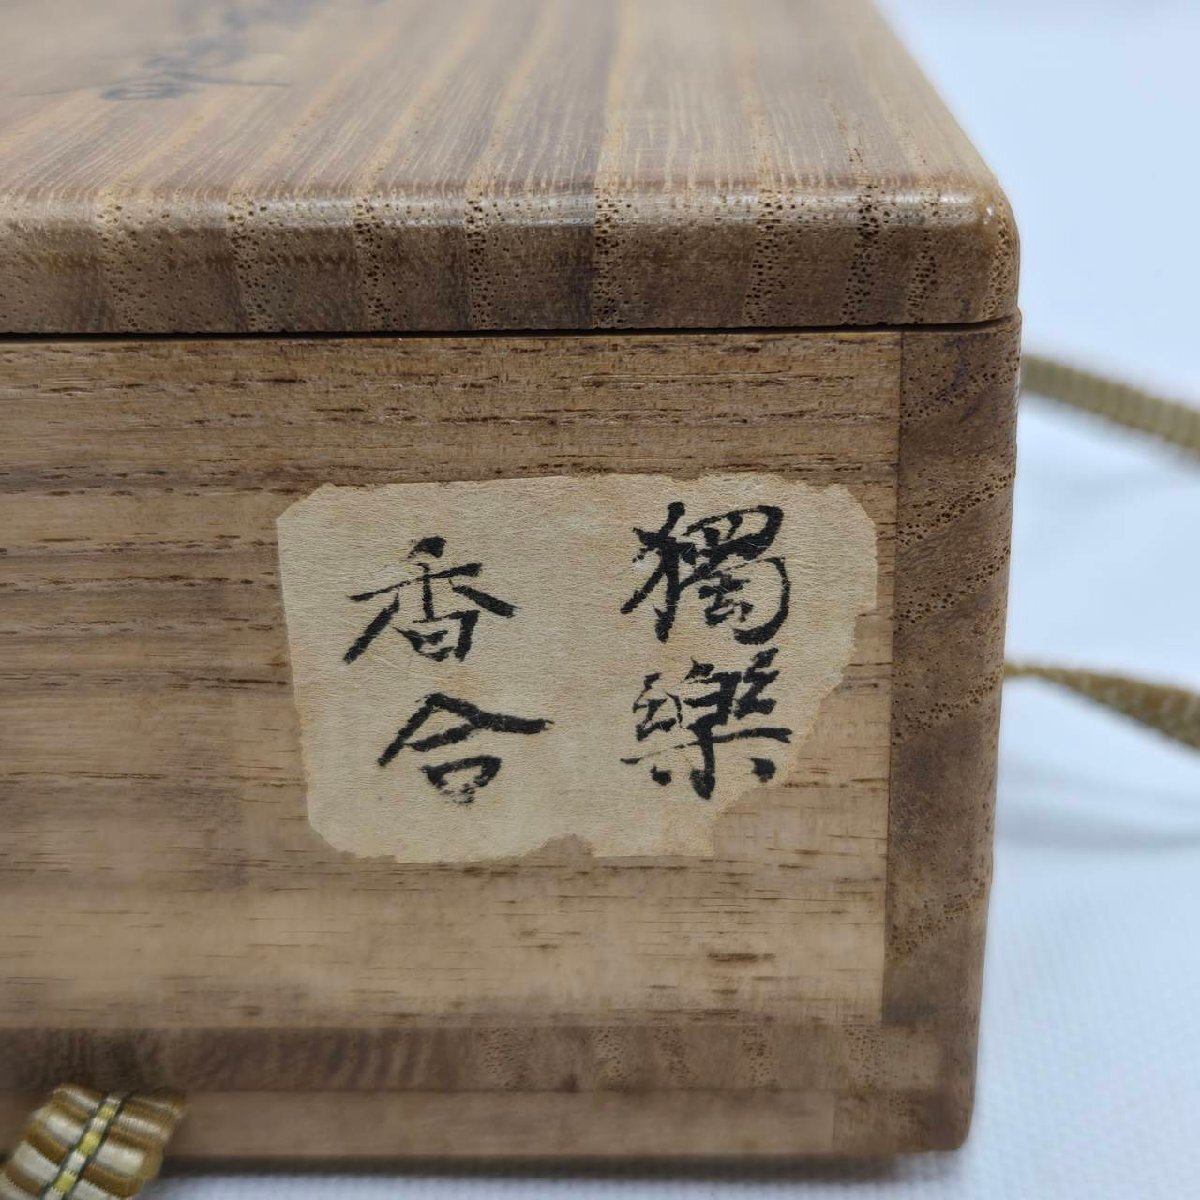 獨樂
香合